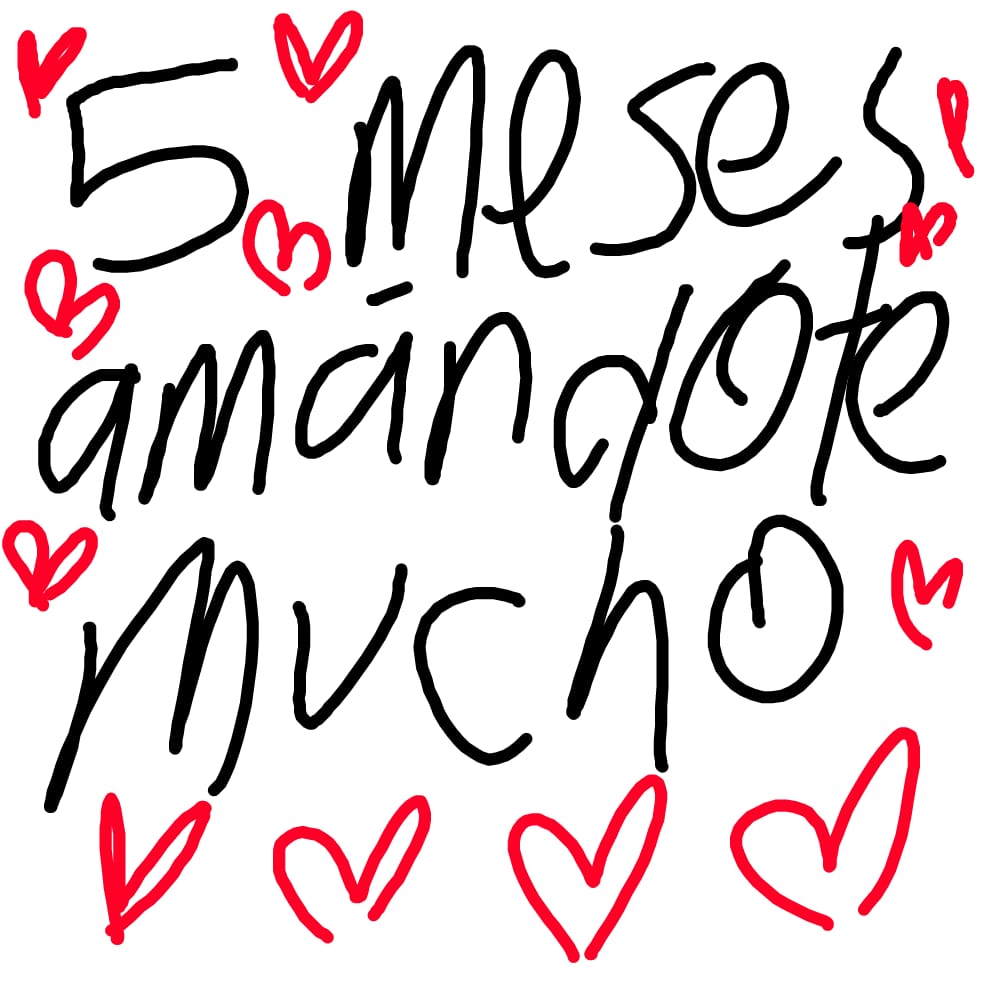 5 meses
amándote
mucho